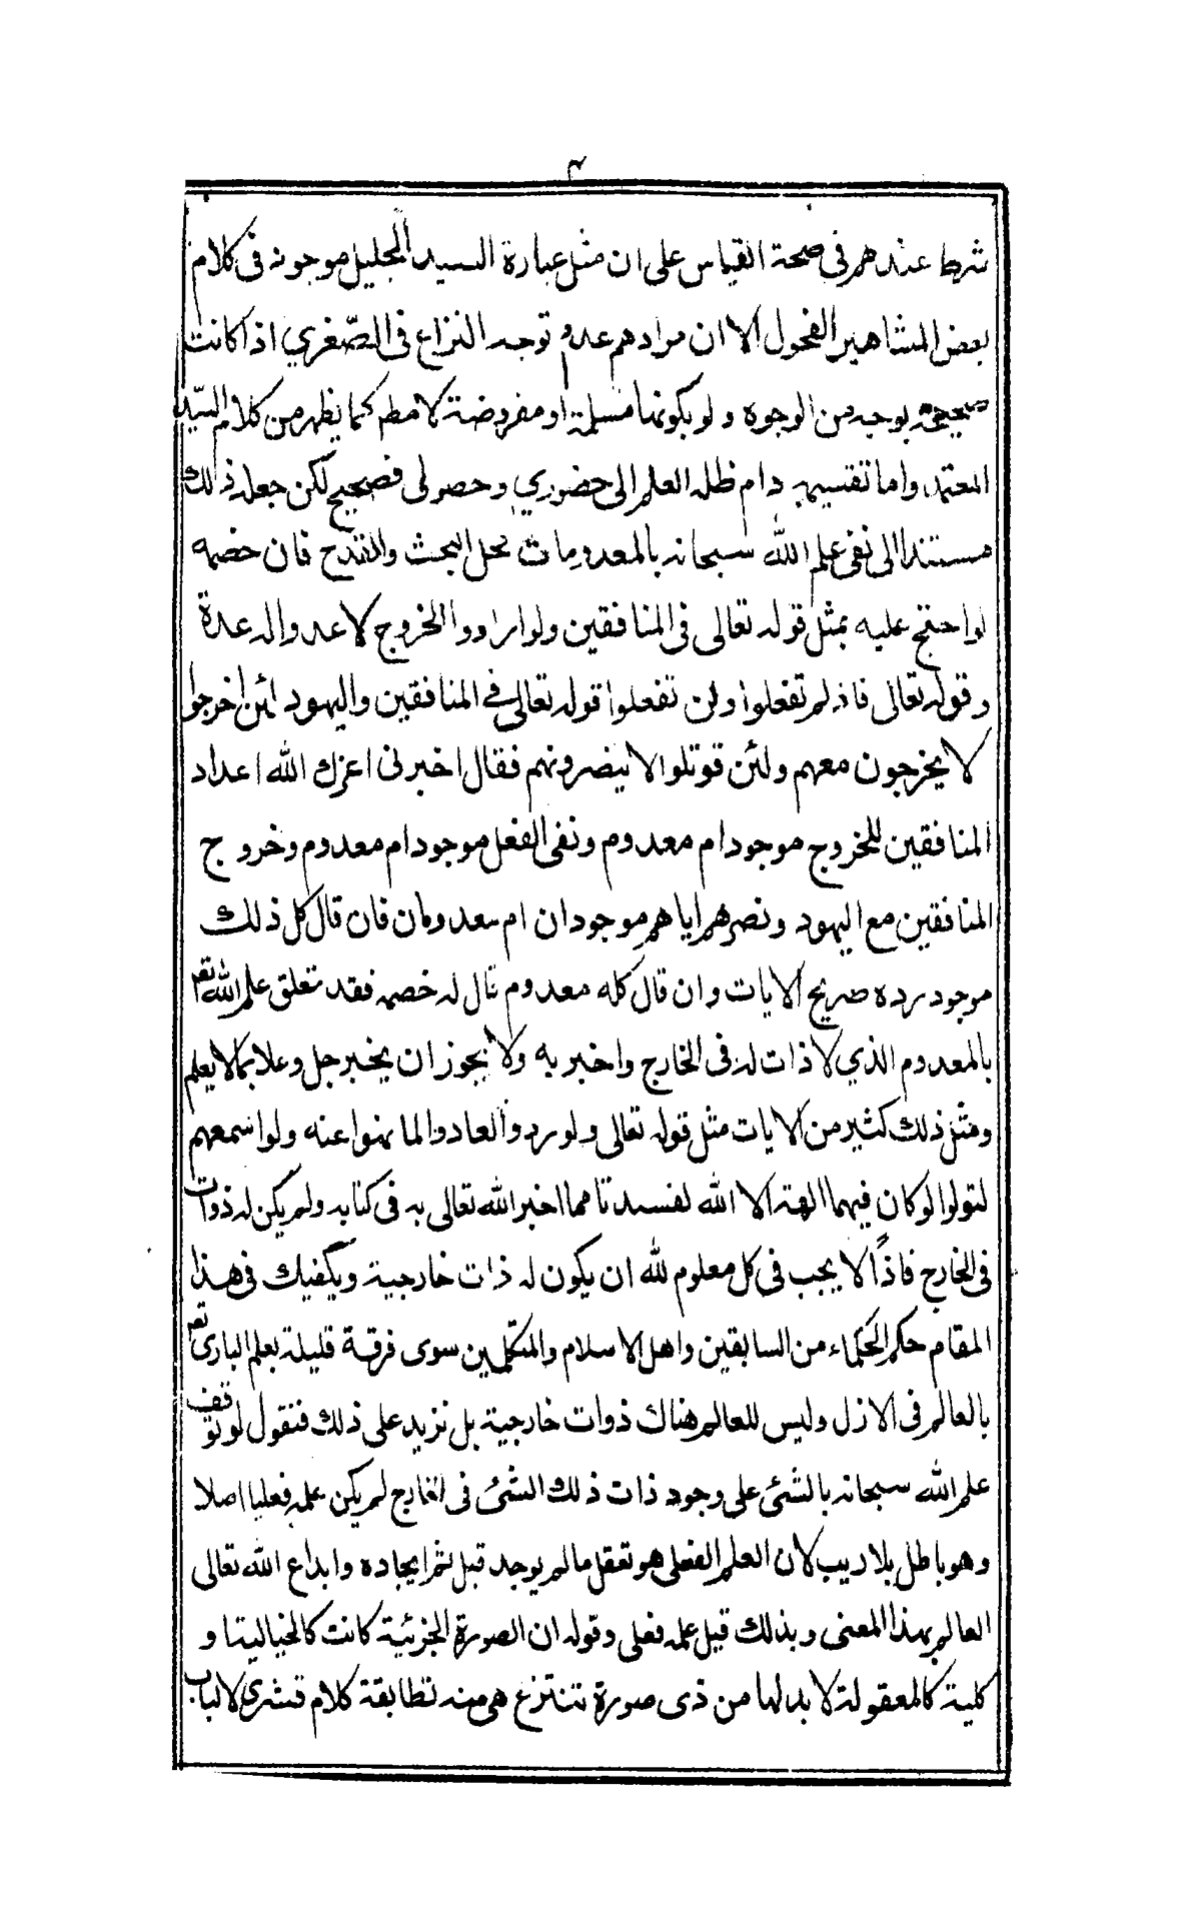 ٣
شرط عندهم فى صحة القياس على ان مثل عبارة السيد الجليل موجوده فى كلام
بعض المشاهير الفحول الا ان مرادهم عدم توجه النزاع فى الصّغري اذا كانت
صحيحة بوجه من الوجوه ولو بكونها مسلمة او مفروضة لا مطم كما يظهر من كلام السيّد
المعتمد واما تقسيمه دام ظله العلم الى حضوري وحصولى فصحيح لكن جعله ذلك
مستندا الى نفى علم الله سبحانه بالمعدومات محل البحث والقدح فان خصمه
لو احتج عليه بمثل قوله تعالى فى المنافقين ولو ارادوا الخروج لاعدوا له عدة
وقوله تعالى فاذ لم تفعلوا ولن تفعلوا قوله تعالى فى المنافقين واليهود لئن اخرجوا
لا يخرجون معهم ولئن قوتلوا لا ينصرونهم فقال اخبرنى اعزك الله اعداد
المنافقين للخروج موجود ام معدوم ونفى الفعل موجود ام معدوم وخروج
المنافقين مع اليهود ونصرهم اياهم موجودان ام معدومان فان قال كل ذلك
موجود رده صريح الايات وان قال كله معدوم قال له خصمه فقد تعلق علم الله تع
بالمعدوم الذي لا ذات له فى الخارج واخبر به ولا يجوز ان يخبر جل وعلا بما لا يعلم
ومثل ذلك كثير من الايات مثل قوله تعالى ولو ردوا لعادوا لما نهوا عنه ولو اسمعهم
لتولوا لو كان فيهما الهة الا الله لفسدتا مما اخبر الله تعالى به فى كتابه ولم يكن له ذوات
فى الخارج فاذًا لا يجب فى كل معلوم لله ان يكون له ذات خارجية ويكفيك فى هذا
المقام حكم الحكماء من السابقين واهل الاسلام والمتكلّمين سوى فرقة قليلة بعلم البارى تع
بالعالم فى الازل وليس للعالم هناك ذوات خارجية بل نزيد على ذلك فنقول لو توقف
علم الله سبحانه بالشئ على وجود ذات ذلك الشئ فى الخارج لم يكن علمه فعليا اصلا
وهو باطل بلا ريب لان العلم الفعلى هو تعقل ما لم يوجد قبل ثم ايجاده وابداع الله تعالى
العالم بهذا المعنى وبذلك قيل علمه فعلى وقوله ان الصورة الجزئية كانت كالخياليتا و
كلية كالمعقولة لا بد لها من ذى صورة تنتزع هى منه تطابقة كلام قشرى لا لباب